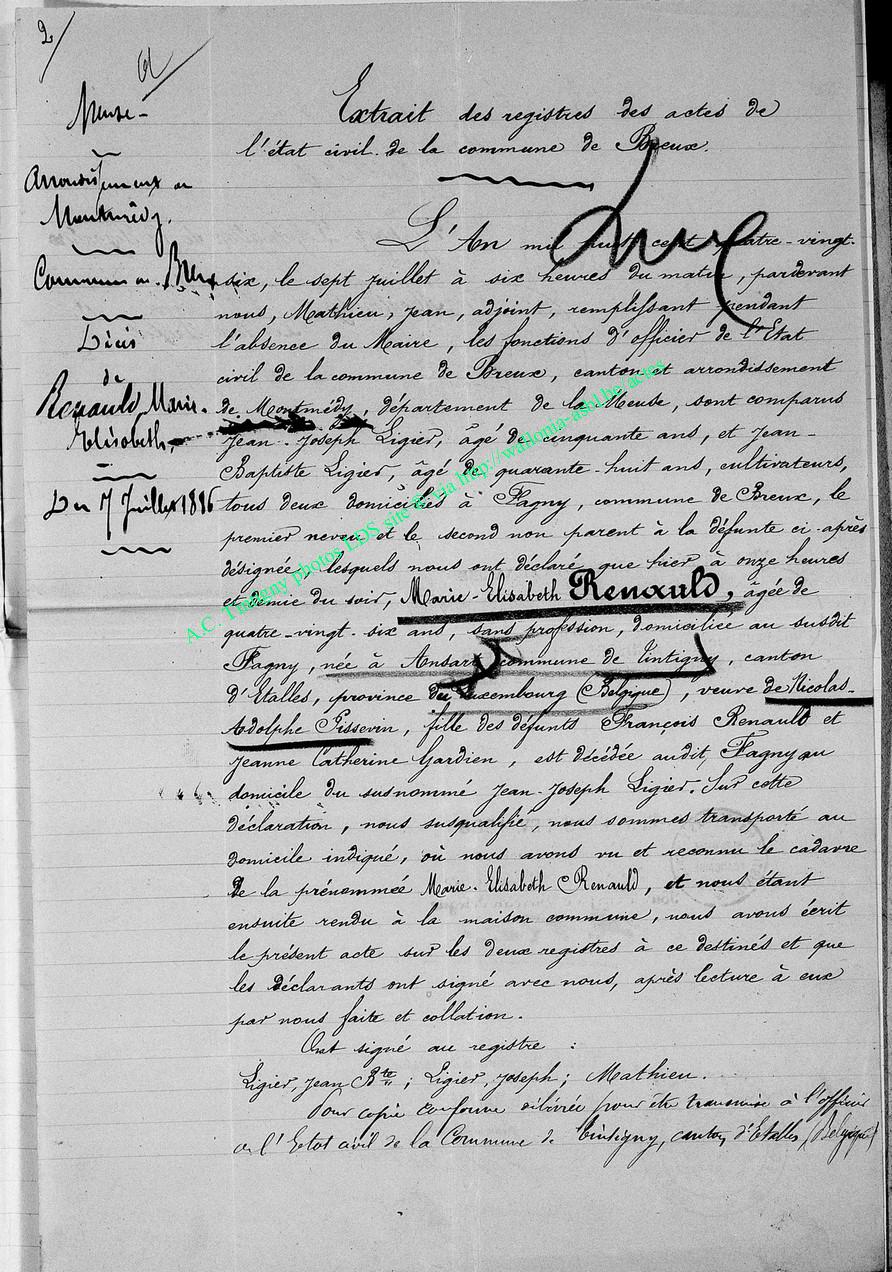 2/
Meuse -
Arrondissement de
Montmédy.
Commune de Breux
Décès
de
Renauld, Marie-
Elisabeth,
Du 7 Juillet 1886
Extrait des registres des actes de
l'état civil de la commune de Breux.
L'An mil huit cent quatre-vingt-
six, le sept juillet à six heures du matin, pardevant
nous, Mathieu, Jean, adjoint, remplissant pendant
l'absence du Maire, les fonctions d'officier de l'Etat
civil de la commune de Breux, canton et arrondissement
de Montmédy, département de la Meuse, sont comparus
Jean-Joseph Ligier, âgé de cinquante ans, et Jean-
Baptiste Ligier, âgé de quarante-huit ans, cultivateurs,
tous deux domiciliés à Fagny, commune de Breux, le
premier neveu et le second non parent à la défunte ci-après
désignée, lesquels nous ont déclaré que hier à onze heures
et demie du soir, Marie-Elisabeth Renauld, âgée de
quatre-vingt-six ans, sans profession, domiciliée au susdit
Fagny, née à Ansart commune de Tintigny, canton
d'Etalles, province du Luxembourg (Belgique), veuve de Nicolas-
Adolphe Gisserin, fille des défunts François Renauld et
Jeanne Catherine Gardien, est décédée audit Fagny au
domicile du susnommé Jean-Joseph Ligier. Sur cette
déclaration, nous susqualifié, nous sommes transporté au
domicile indiqué, où nous avons vu et reconnu le cadavre
de la prénommée Marie-Elisabeth Renauld, et nous étant
ensuite rendu à la maison commune, nous avons écrit
le présent acte sur les deux registres à ce destinés et que
les déclarants ont signé avec nous, après lecture à eux
par nous faite et collation.
Ont signé au registre :
Ligier, Jean Bte ; Ligier, Joseph ; Mathieu.
Pour copie conforme délivrée pour être transmise à l'officier
de l'Etat civil de la Commune de Tintigny, canton d'Etalles (Belgique)
A.C. Tintigny photos LDS site © via http://wallonia-asbl.be/actes